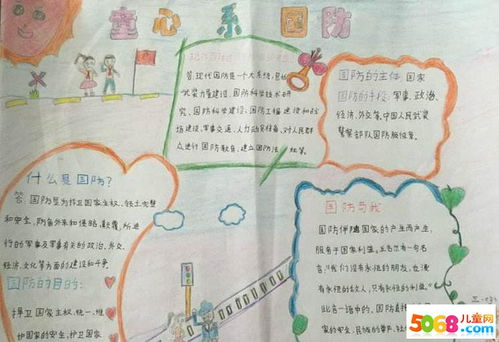 童心系国防
答：现代国防是一个大系统，包括
武装力量建设、国防科学技术研
究、国防科学建设、国防工程建设和战
场建设、军事交通、人力动员准备、对人民群
众进行国防教育、建立国防法
国防的主体：国家
国防的手段：军事、政治、
经济、外交等，中国人民武装
警察部队国防服役等。
什么是国防？
答：国防是为捍卫国家主权、领土完整
和安全，防备外来和侵略、颠覆，所进
行的军事及军事有关的政治、外交、
经济、文化等方面的建设和斗争
国防的目的：
捍卫国家主权、统一、维
护国家的安全，护卫国家
国防与我
国防伴随国家的产生而产生，
服务于国家利益，丘吉尔有一句名
言：“我们没有永恒的朋友，也没
有永恒的敌人，只有永恒的利益。”
此言一语中的，国防直
家的安全、民族的尊严、社
5068儿童网
www.5068.com